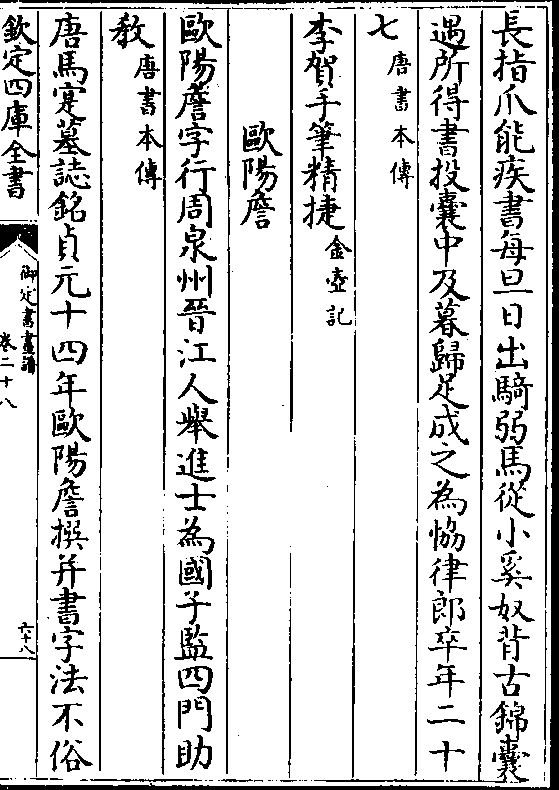 長指爪能疾書每旦日出騎弱馬從小奚奴背古錦囊
遇所得書投囊中及暮歸足成之為恊律郎卒年二十
七唐書本傳
李賀手筆精捷金壺記
歐陽詹
歐陽詹字行周泉州晉江人舉進士為國子監四門助
教唐書本傳
唐馬寔墓誌銘貞元十四年歐陽詹撰并書字法不俗
欽定四庫全書
御定書畫譜
卷二十八
六十八